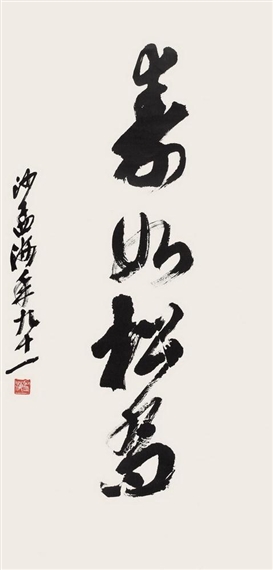 寿如松乔
沙孟海年九十一